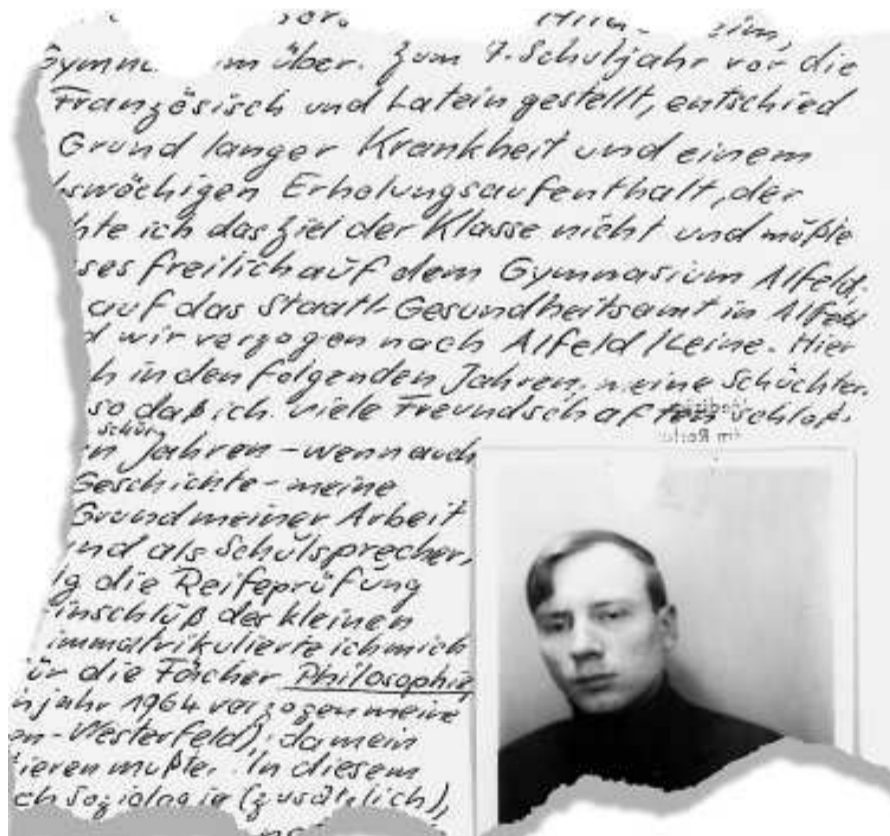 Gymn im über. Zum 7. Schuljahr vor die
Französisch und Latein gestellt, entschied
Grund langer Krankheit und einem
hswöchigen Erholungsaufenthalt, der
hte ich das Ziel der Klasse nicht und mußte
ses freilich auf dem Gymnasium Alfeld,
auf das Staatl. Gesundheitsamt in Alfeld
d wir verzogen nach Alfeld/Leine. Hier
h in den folgenden Jahren, meine Schüchter-
so daß ich viele Freundschaften schloß.
schul
en Jahren - wenn auch
Geschichte - meine
Grund meiner Arbeit
und als Schulsprecher,
lg die Reifeprüfung
inschluß des kleinen
immatrikulierte ich mich
für die Fächer Philosophie
njahr 1964 verzogen meine
en-Westerfeld), da mein
ieren mußte. In diesem
ch Soziologie (zusätzlich),